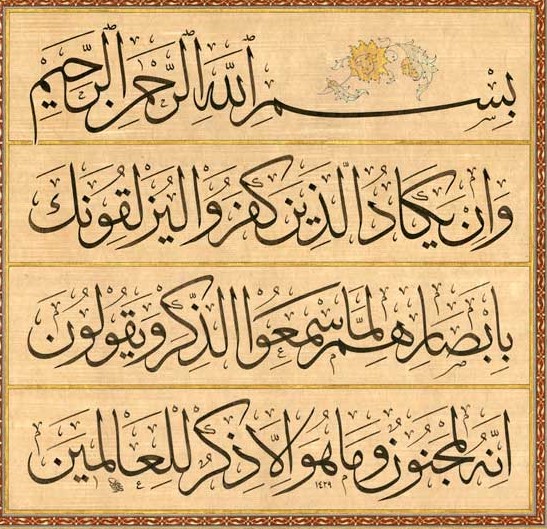 بِسْمِ اللّٰهِ الرَّحْمٰنِ الرَّحِيمِ
وَاِنْ يَكَادُ الَّذِينَ كَفَرُوا لَيُزْلِقُونَكَ
بِاَبْصَارِهِمْ لَمَّا سَمِعُوا الذِّكْرَ وَيَقُولُونَ
اِنَّهُ لَمَجْنُونٌ وَمَا هُوَ اِلَّا ذِكْرٌ لِلْعَالَمِينَ
١٤٢٩